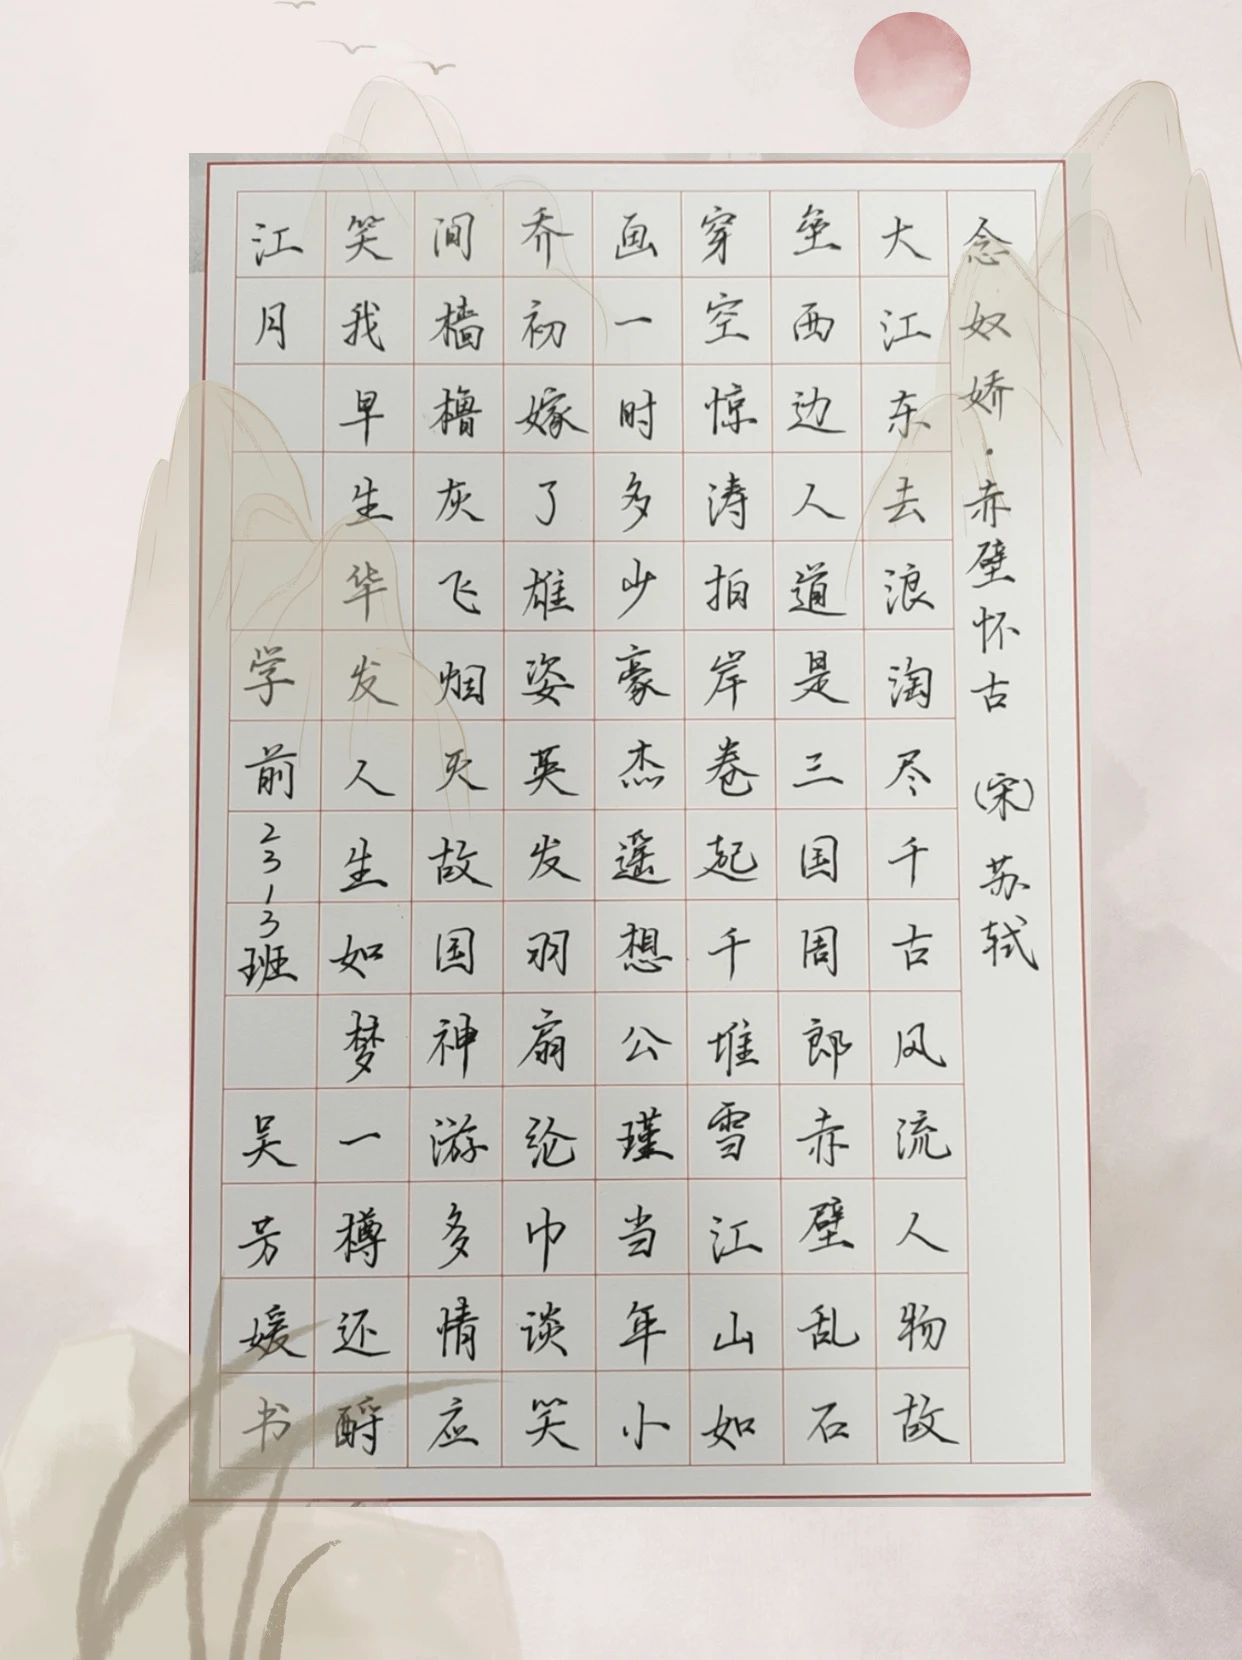 念奴娇·赤壁怀古 (宋) 苏轼
大江东去浪淘尽千古风流人物故
垒西边人道是三国周郎赤壁乱石
穿空惊涛拍岸卷起千堆雪江山如
画一时多少豪杰遥想公瑾当年小
乔初嫁了雄姿英发羽扇纶巾谈笑
间樯橹灰飞烟灭故国神游多情应
笑我早生华发人生如梦一樽还酹
江月 学前2313班 吴芳媛书